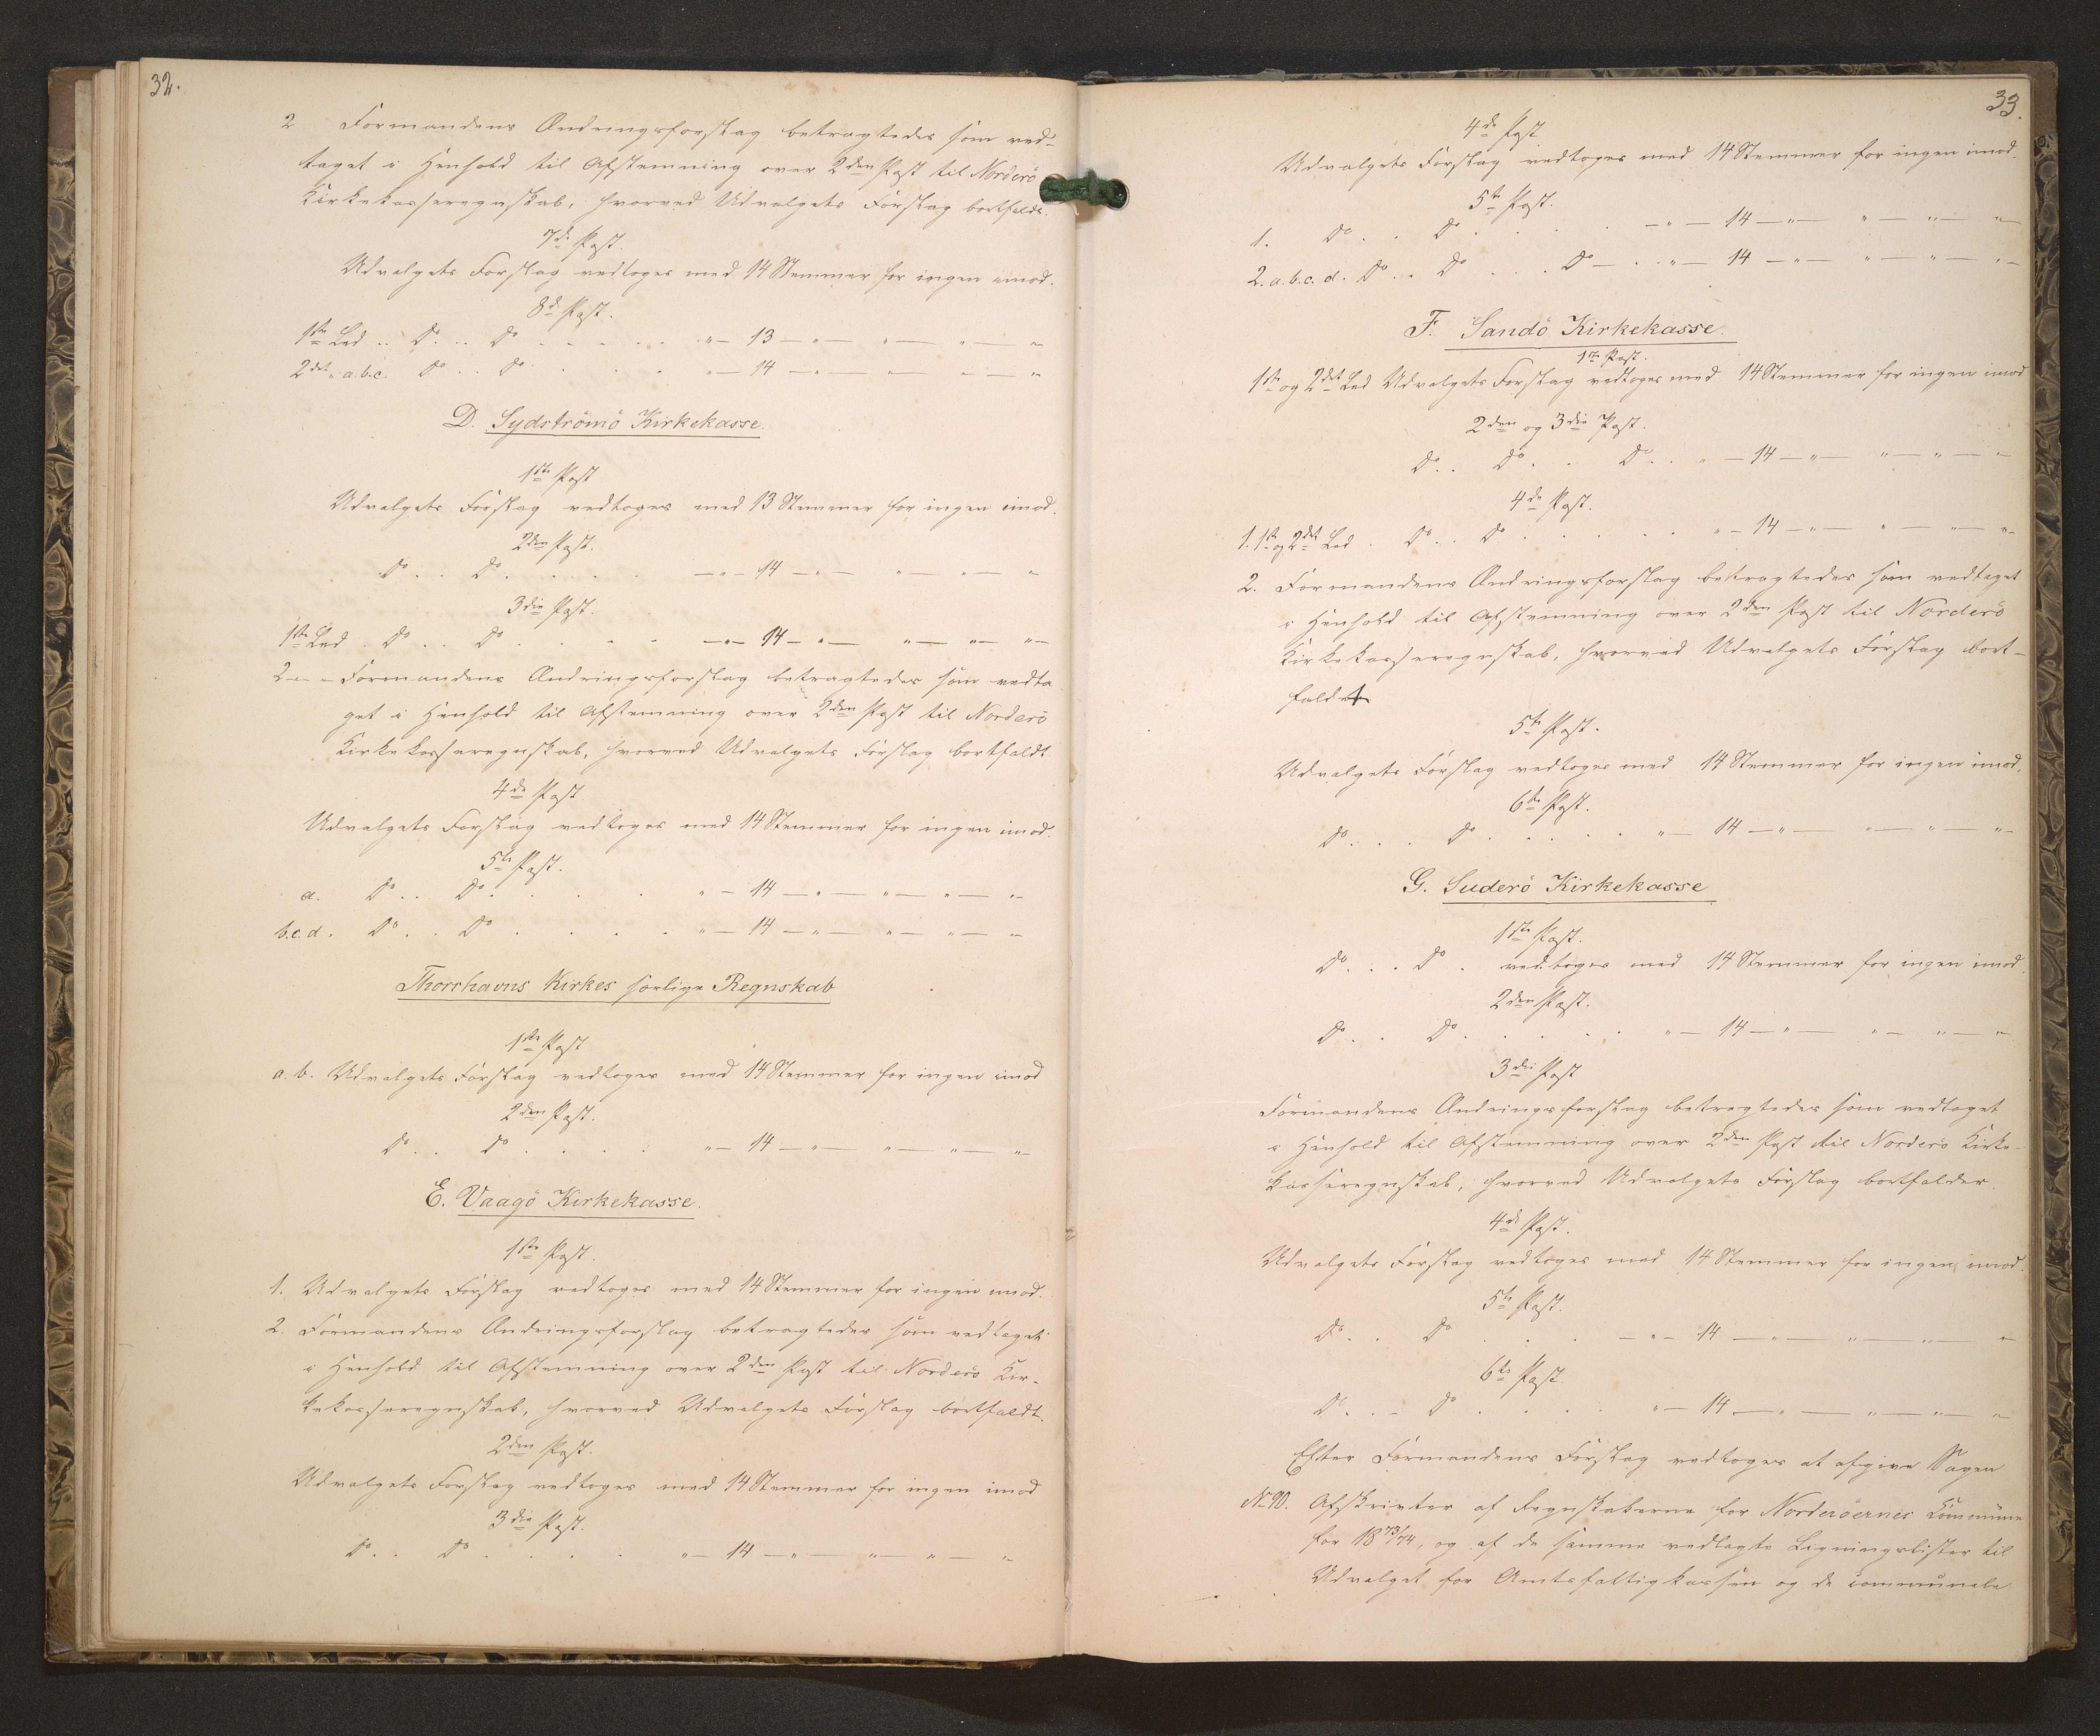 32.
2 Formandens Ændringsforslag betragtedes som ved-
taget i Henhold til Afstemning over 2den Post til Norderö
Kirkekasseregnskab, hvorved Udvalgets Forslag bortfaldt.
7de Post.
Udvalgets Forslag vedtoges med 14 Stemmer for ingen imod.
8de Post.
1ste Led .. Do. .. Do . . . . . . „ — 13 — „ — „ — „ — „
2det „ a.b.c. Do . . Do . . . „ — 14 — „ — „ — „ — „
D. Sydströmö Kirkekasse.
1ste Post
Udvalgets Forslag vedtoges med 13 Stemmer for ingen imod.
2den Post.
Do . . Do . . . . . — „ — 14 — „ — „ — „ — „
3die Post.
1ste Led . Do . . Do . . . . — „ — 14 — „ — „ — „ — „ —
2 — „ — Formandens Ændringsforslag betragtedes som vedta
get i Henhold til Afstemning over 2den Post til Norderö
Kirkekasseregnskab, hvorved Udvalgets Forslag bortfaldt.
4de Post
Udvalgets Forslag vedtoges med 14 Stemmer for ingen imod.
5te Post.
a. Do . . Do . . . . „ — 14 — „ — „ — „ — „ —
b.c.d. Do . . Do . . . . „ — 14 — „ — „ — „ — „ —
Thorshavns Kirkes særlige Regnskab
1ste Post
a. b. Udvalgets Forslag vedtoges med 14 Stemmer for ingen imod
2den Post.
Do . . Do . . . . . „ — 14 — „ — „ — „ — „ —
E. Vaagö Kirkekasse.
1ste Post.
1. Udvalgets Forslag vedtoges med 14 Stemmer for ingen imod.
2. Formandens Ændringsforslag betragtedes som vedtaget
i Henhold til Afstemning over 2den Post til Norderö Kir-
kekasseregnskab, hvorved Udvalgets Forslag bortfaldt.
2den Post.
Udvalgets Forslag vedtoges med 14 Stemmer for ingen imod
3die Post.
Do . . Do . . . . . „ — 14 — „ — „ — „ — „ —
33.
4de Post
Udvalgets Forslag vedtoges med 14 Stemmer for ingen imod.
5te Post.
1. Do . . Do . . . . — „ — 14 — „ — „ — „ — „ —
2. a.b.c.d. Do . . Do . . . Do — . . „ — 14 — „ — „ — „ — „ —
F. Sandö Kirkekasse.
1ste Post.
1ste og 2det Led Udvalgets Forslag vedtoges med 14 Stemmer for ingen imod
2den og 3die Post.
Do . . Do . . Do . . „ — 14 — „ — „ — „ — „
4de Post.
1. 1ste og 2det Led . Do . . Do . . . . . „ — 14 — „ — „ — „ — „ —
2. Formandens Ændringsforslag betragtedes som vedtaget
i Henhold til Afstemning over 2den Post til Norderö
Kirkekasseregnskab, hvorved Udvalgets Forslag bort-
faldt
5te Post.
Udvalgets Forslag vedtoges med 14 Stemmer for ingen imod.
6te Post.
Do . . . Do . . . . . „ — 14 — „ — „ — „ — „ —
G. Suderö Kirkekasse
1ste Post.
Do . . . Do . vedtoges med 14 Stemmer for ingen imod.
2den Post.
Do . . Do . . . . . „ — 14 — „ — „ — „ — „
3die Post
Formandens Ændringsforslag betragtedes som vedtaget
i Henhold til Afstemning over 2den Post til Norderö Kirke-
kasseregnskab, hvorved Udvalgets Forslag bortfalder.
4de Post.
Udvalgets Forslag vedtoges med 14 Stemmer for ingen imod.
5te Post.
Do . . Do . . . — „ — 14 — „ — „ — „ — „
6te Post.
Do . . — Do . . . . „ — 14 — „ — „ — „ — „
Efter Formandens Forslag vedtoges at afgive Sagen
No 90. Afskrivter af Regnskaberne for Norderöernes Kommune
for 1873/74, og af de samme vedlagte Ligningslister til
Udvalget for Amtsfattigkassen og de kommunale